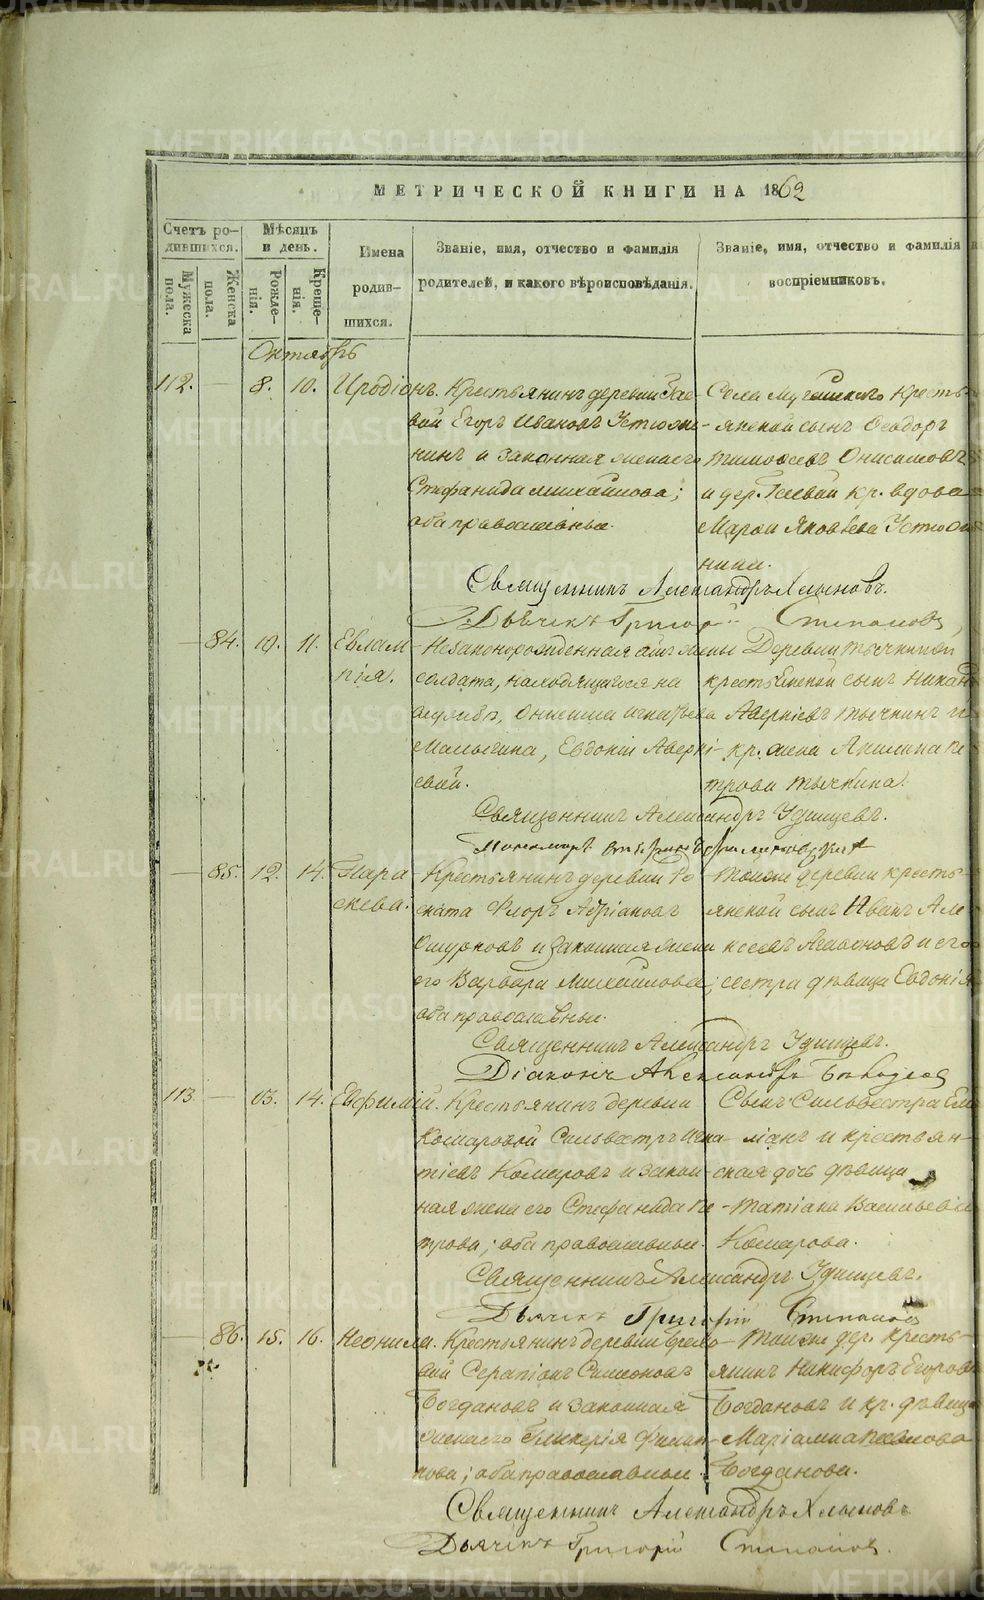 МЕТРИЧЕСКОЙ КНИГИ НА 1862
Счетъ ро-
дившихся.
Мужеска
пола.
Женска
пола.
Мѣсяцъ
и день.
Рожде-
нія.
Креще-
нія.
Имена
родив-
шихся.
Званіе, имя, отчество и фамилія
родителей, и какого вѣроисповѣданія.
Званіе, имя, отчество и фамилія
воспріемниковъ.
Октябрь
112. — 8. 10. Иродіонъ.
Крестьянинъ деревни
вой Егоръ Ивановъ Устюжа-
нинъ и законная жена его
Стефанида Михайлова;
оба православные.
Села крестъ-
янской сынъ Ѳеодоръ
Тимоѳеевъ Онисимовъ
и дер. кр. вдова
Марѳа Яковлева
нина.
Священникъ Александръ Хлыновъ.
Дьячекъ Григорій Степановъ,
— 84. 10. 11. Евлам-
пія.
Незаконорожденная отъ жены
солдата, находящагося на
службѣ, Онисима Игнатьева
Малыгина, Евдокіи Аверкі-
евой.
Деревни Тычкиной
крестьянской сынъ Никандръ
Аверкіевъ Тычкинъ и
кр. жена Акилина Пе-
трова Тычкина.
Священникъ Александръ Удинцевъ.
Пономарь
— 85. 12. 14. Пара-
скева.
Крестьянинъ деревни Ро-
ската Флоръ Адріановъ
Ошурковъ и законная жена
его Варвара Михайлова;
оба православные.
Тойже деревни кресть-
янской сынъ Иванъ Але-
ксеевъ и его
сестра дѣвица Евдокія
Священникъ Александръ Удинцевъ.
Діаконъ Александръ
113 — 13. 14. Евфимій.
Крестьянинъ деревни
Комаровой Сильвестръ Игна-
тіевъ Комаровъ и закон-
ная жена его Стефанида Пе-
трова; оба православные.
Сынъ Сильвестра Еме-
ліанъ и крестьян-
ская дочь дѣвица
Татіана Васильева
Комарова.
Священникъ Александръ Удинцевъ.
Дьячекъ Григорій Степановъ
— 86. 15. 16. Неонила.
Крестьянинъ деревни
вой Серапіонъ Симоновъ
Богдановъ и законная
жена его Гликерія Филип-
пова; оба православные.
Тойже дер. кресть-
янинъ Никифоръ Егоровъ
Богдановъ и кр. дѣвица
Маріамна Павлова
Богданова.
Священникъ Александръ Хлыновъ
Дьячекъ Григорій Степановъ.
METRIKI.GASO-URAL.RU